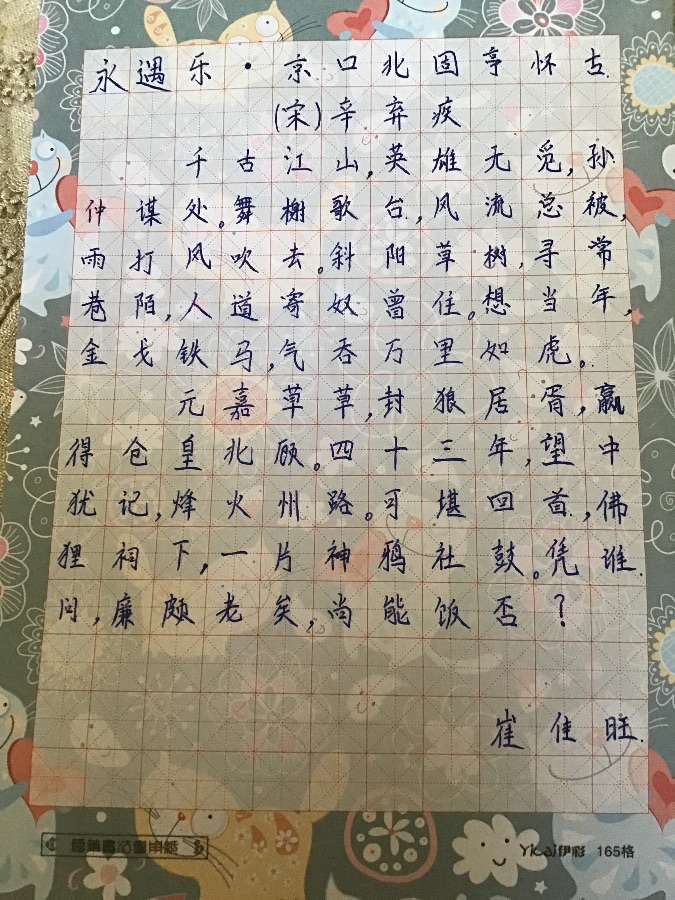 永遇乐·京口北固亭怀古
(宋)辛弃疾
千古江山,英雄无觅,孙
仲谋处。舞榭歌台,风流总被,
雨打风吹去。斜阳草树,寻常
巷陌,人道寄奴曾住。想当年,
金戈铁马,气吞万里如虎。
元嘉草草,封狼居胥,赢
得仓皇北顾。四十三年,望中
犹记,烽火州路。可堪回首,佛
狸祠下,一片神鸦社鼓。凭谁
问,廉颇老矣,尚能饭否?
崔佳旺
Yicai伊彩 165格